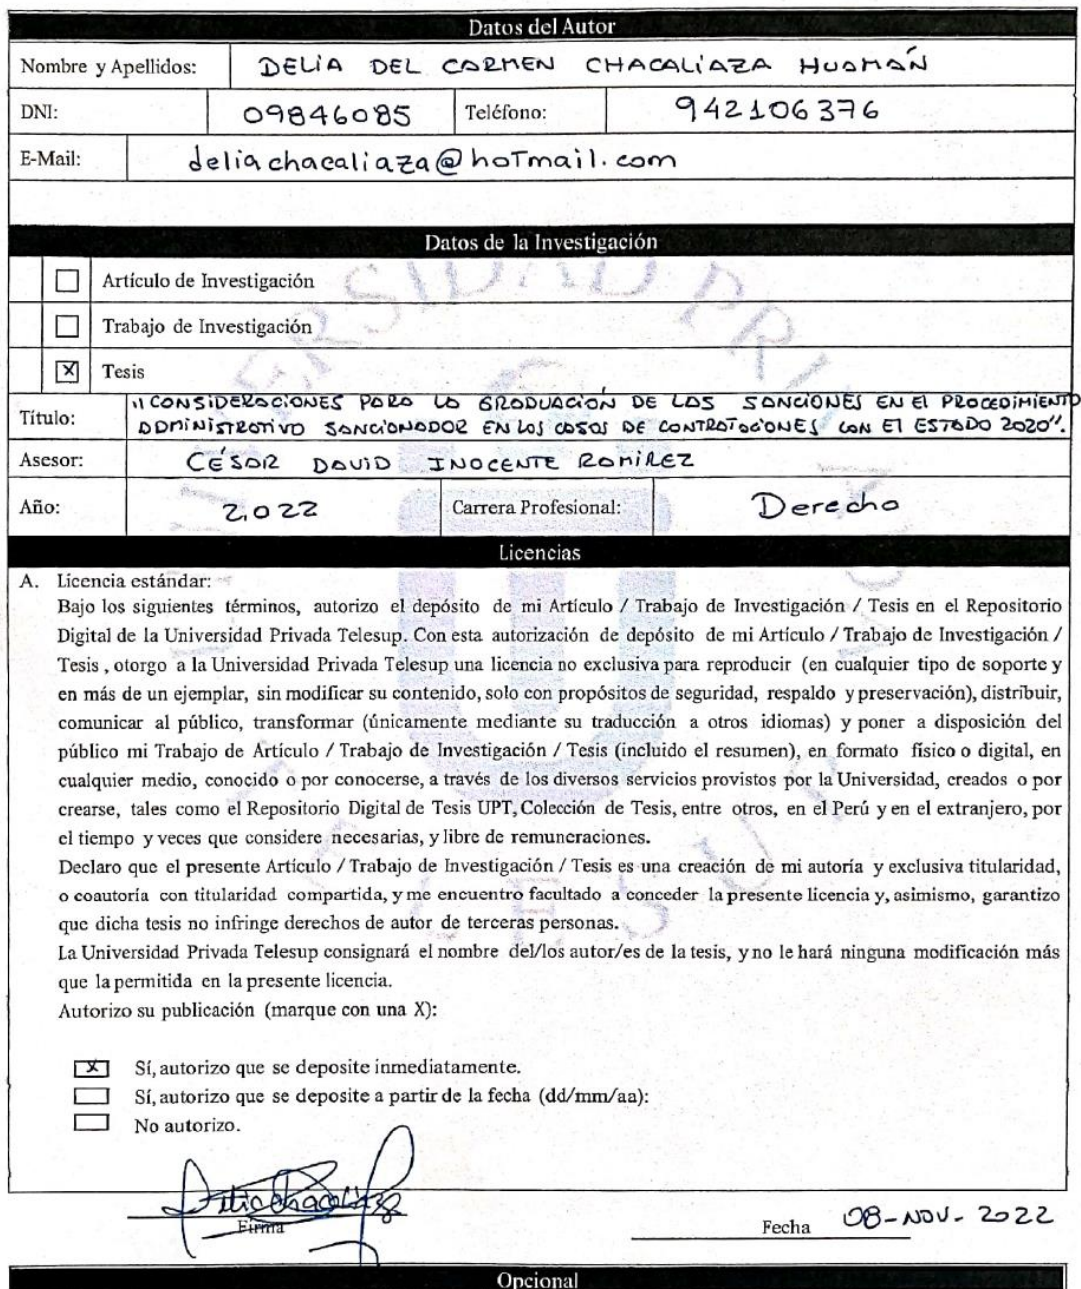 Datos del Autor
Nombre y Apellidos: DELIA DEL CARMEN CHACALIAZA HUAMÁN
DNI: 09846085 Teléfono: 942106376
E-Mail: deliachacaliaza@hotmail.com
Datos de la Investigación
Artículo de Investigación
Trabajo de Investigación
X Tesis
Título: "CONSIDERACIONES PARA LA GRADUACIÓN DE LAS SANCIONES EN El PROCEDIMIENTO
ADMINISTRATIVO SANCIONADOR EN LOS CASOS DE CONTRATACIONES CON El ESTADO 2020".
Asesor: CÉSAR DAVID INOCENTE RAMÍREZ
Año: 2,022 Carrera Profesional: Derecho
Licencias
A. Licencia estándar:
Bajo los siguientes términos, autorizo el depósito de mi Artículo / Trabajo de Investigación / Tesis en el Repositorio
Digital de la Universidad Privada Telesup. Con esta autorización de depósito de mi Artículo / Trabajo de Investigación /
Tesis , otorgo a la Universidad Privada Telesup una licencia no exclusiva para reproducir (en cualquier tipo de soporte y
en más de un ejemplar, sin modificar su contenido, solo con propósitos de seguridad, respaldo y preservación), distribuir,
comunicar al público, transformar (únicamente mediante su traducción a otros idiomas) y poner a disposición del
público mi Trabajo de Artículo / Trabajo de Investigación / Tesis (incluido el resumen), en formato físico o digital, en
cualquier medio, conocido o por conocerse, a través de los diversos servicios provistos por la Universidad, creados o por
crearse, tales como el Repositorio Digital de Tesis UPT, Colección de Tesis, entre otros, en el Perú y en el extranjero, por
el tiempo y veces que considere necesarias, y libre de remuneraciones.
Declaro que el presente Artículo / Trabajo de Investigación / Tesis es una creación de mi autoría y exclusiva titularidad,
o coautoría con titularidad compartida, y me encuentro facultado a conceder la presente licencia y, asimismo, garantizo
que dicha tesis no infringe derechos de autor de terceras personas.
La Universidad Privada Telesup consignará el nombre del/los autor/es de la tesis, y no le hará ninguna modificación más
que la permitida en la presente licencia.
Autorizo su publicación (marque con una X):
X Sí, autorizo que se deposite inmediatamente.
Sí, autorizo que se deposite a partir de la fecha (dd/mm/aa):
No autorizo.
Firma
Fecha 08-NOV-2022
Opcional